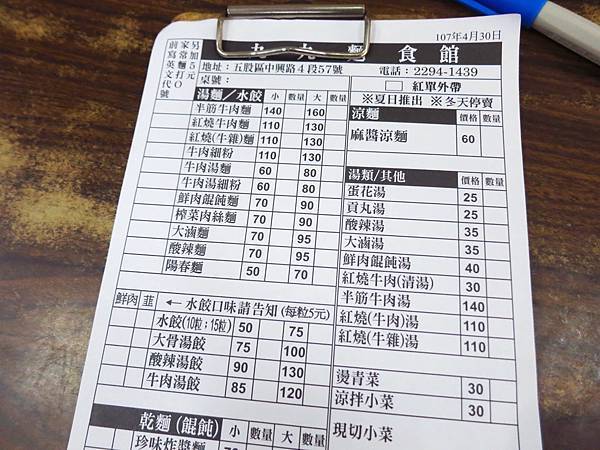 107年4月30日
食館
地址：五股區中興路4段57號
電話：2294-1439
桌號：
紅單外帶
※夏日推出 ※冬天停賣
湯麵／水餃 小 數量 大 數量
半筋牛肉麵 140 160
紅燒牛肉麵 110 130
紅燒(牛雜)麵 110 130
牛肉細粉 110 130
牛肉湯麵 60 80
牛肉湯細粉 60 80
鮮肉餛飩麵 70 90
榨菜肉絲麵 70 95
大滷麵 70 95
酸辣麵 70 95
陽春麵 50 70
鮮肉 韭 ← 水餃口味請告知 (每粒5元)
水餃(10粒；15粒) 50 75
大骨湯餃 75 100
酸辣湯餃 90 130
牛肉湯餃 85 120
乾麵 (餛飩) 小 數量 大 數量
珍味炸醬麵
涼麵 價格 數量
麻醬涼麵 60
湯類/其他 價格 數量
蛋花湯 25
貢丸湯 25
酸辣湯 35
大滷湯 35
鮮肉餛飩湯 40
紅燒牛肉(清湯) 30
半筋牛肉湯 140
紅燒(牛肉)湯 110
紅燒(牛雜)湯 110
燙青菜 30
涼拌小菜 30
現切小菜